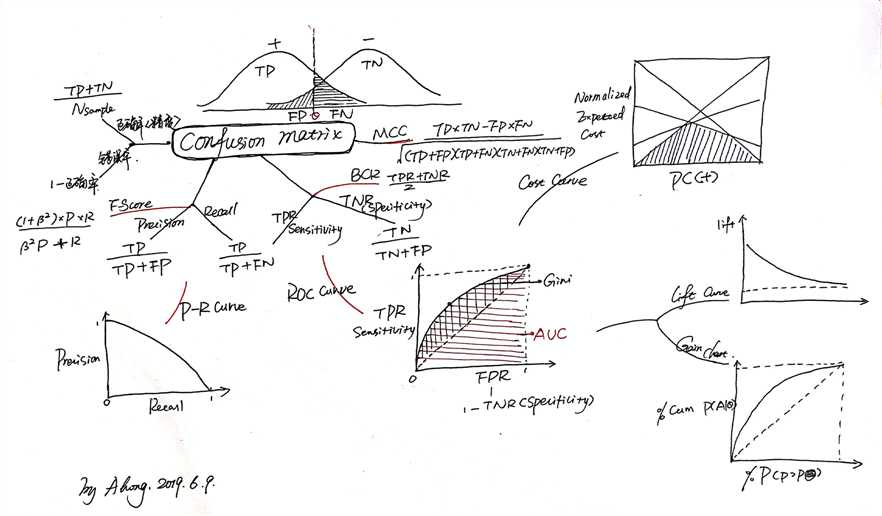 +
−
TP
TN
FP
FN
TP+TN
Nsample
正确率(精度)
错误率
1-正确率
Confusion matrix
MCC
TP×TN-FP×FN
√(TP+FP)(TP+FN)(TN+FN)(TN+FP)
Normalized
Expected
Cost
PC(+)
Cost Curve
BCR
TPR+TNR
2
TNR
(Speriticity)
TN
TN+FP
TPR
Sensitivity
FScore
Precision
Recall
(1+β²)×P×R
β²P+R
TP
TP+FP
TP
TP+FN
P-R Curve
ROC Curve
1
Precision
0
Recall
1
TPR
Sensitivity
1
Gini
AUC
0
FPR
1
1-TNR(Speriticity)
lift
Lift Curve
Gain Chart
% Cum
% P(P>P
by Ahong. 2019.6.9.